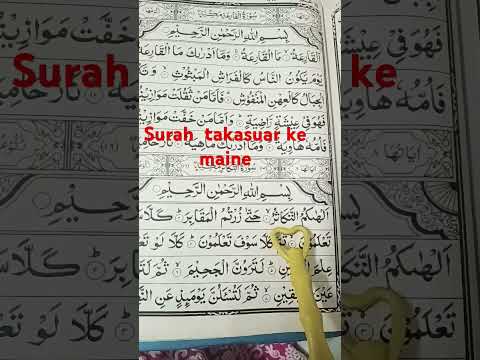 سُوْرَةُ الْقَارِعَةِ مَكِّيَّةٌ
بِسْمِ اللهِ الرَّحْمٰنِ الرَّحِيْمِ
اَلْقَارِعَةُ مَا الْقَارِعَةُ وَمَاۤ اَدْرٰىكَ مَا الْقَارِعَةُ
يَوْمَ يَكُوْنُ النَّاسُ كَالْفَرَاشِ الْمَبْثُوْثِ
الْجِبَالُ كَالْعِهْنِ الْمَنْفُوْشِ فَاَمَّا مَنْ ثَقُلَتْ
فَهُوَ فِيْ عِيْشَةٍ رَّاضِيَةٍ وَاَمَّا مَنْ خَفَّتْ
Surah takasuar ke
maine
هَاوِيَةٌ وَمَاۤ اَدْرٰىكَ مَاهِيَهْ
بِسْمِ اللهِ الرَّحْمٰنِ الرَّحِيْمِ
اَلْهٰىكُمُ التَّكَاثُرُ حَتّٰى زُرْتُمُ الْمَقَابِرَ كَلَّا سَوْفَ
تَعْلَمُوْنَ ثُمَّ كَلَّا سَوْفَ تَعْلَمُوْنَ كَلَّا لَوْ
عِلْمَ الْيَقِيْنِ لَتَرَوُنَّ الْجَحِيْمَ ثُمَّ
عَيْنَ الْيَقِيْنِ ثُمَّ لَتُسْئَلُنَّ يَوْمَئِذٍ عَنِ